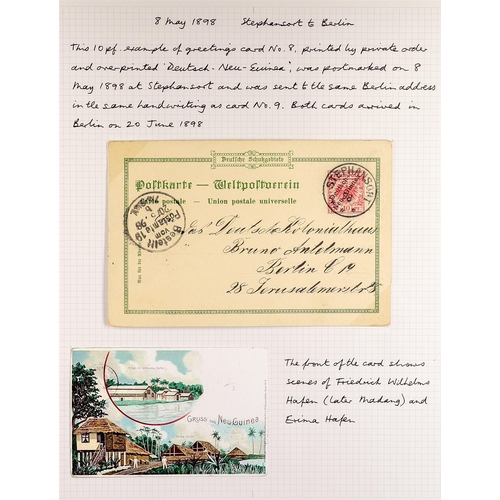 8 May 1898 Stephansort to Berlin
This 10 pf. example of greetings card No. 8, printed by private order
and overprinted 'Deutsch-Neu-Guinea', was postmarked on 8
May 1898 at Stephansort and was sent to the same Berlin address
in the same handwriting as card No. 9. Both cards arrived in
Berlin on 20 June 1898
Deutsche Schutzgebiete
Postkarte — Weltpostverein
Carte postale — Union postale universelle
STEPHANSORT
Bestellt
vom
Postamte 19
Das Deutsche Kolonialhaus
Bruno Antelmann
Berlin C 19
28 Jerusalemerstr
GRUSS aus NEU GUINEA
The front of the card shows
scenes of Friedrich Wilhelms
Hafen (later Madang) and
Erima Hafen